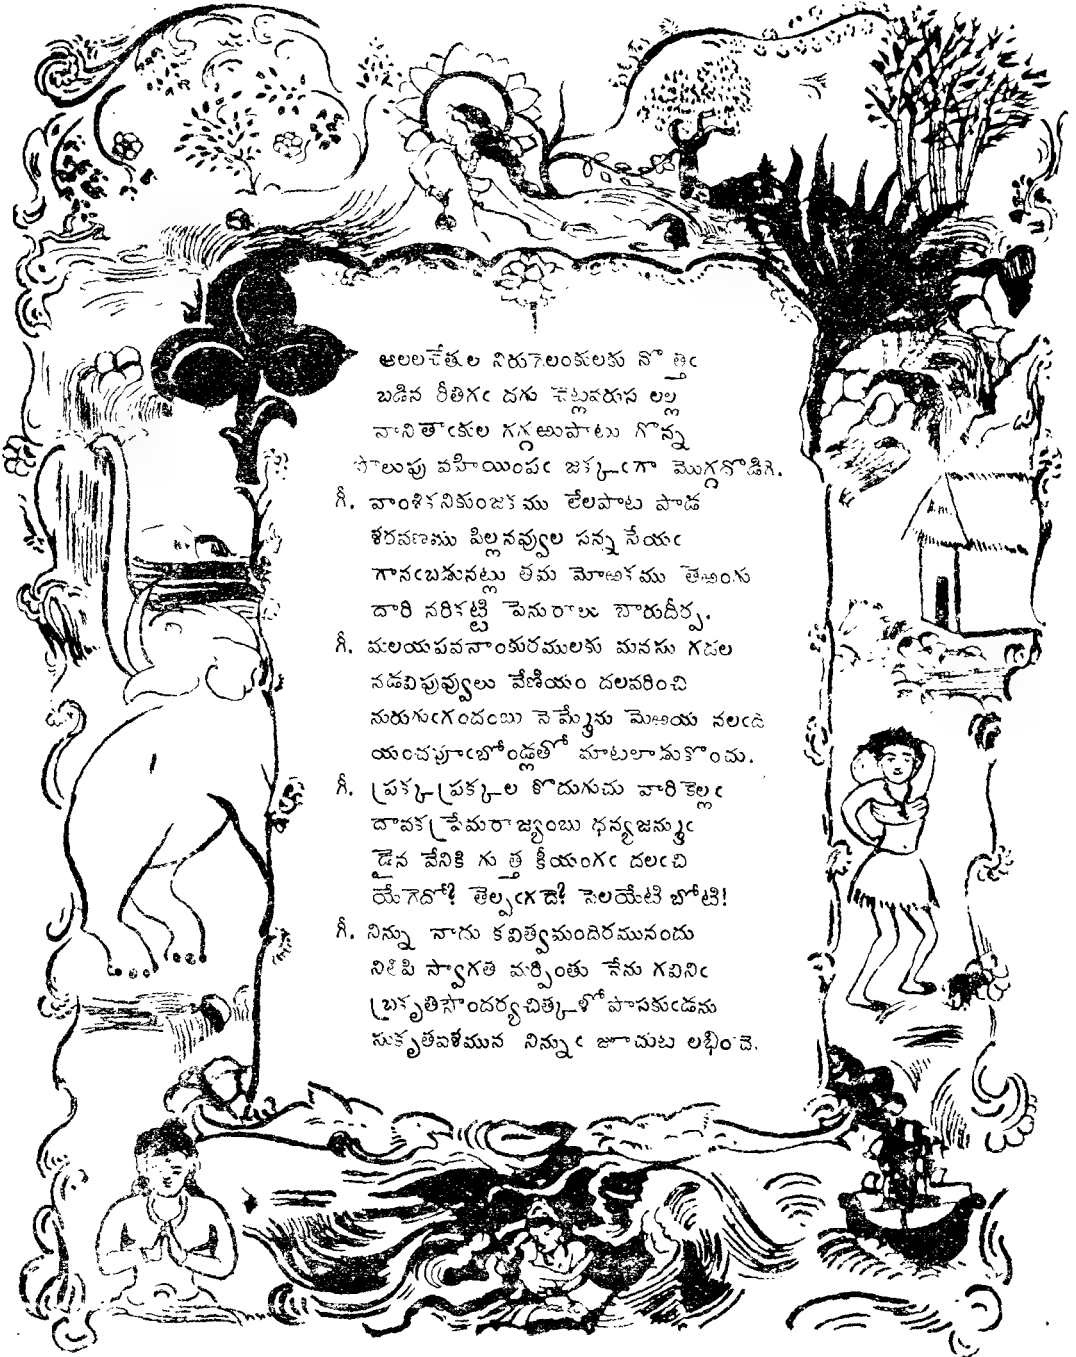 అలలచేతుల నిరుగెలంకులకు నొ త్తిఁ
బడిన రీతిగఁ దగు చెట్లవరుస లల్ల
నానితాఁకుల గగ్గఱుపాటు గొన్న
పొలుపు వహియింపఁ జక్కఁగా మొగ్గతొడిగి.
గీ. వాంశికనికుంజకము లేలపాట పాడ
శరవణము పిల్లనవ్వుల సన్న సేయఁ
గానఁబడునట్లు తమ మోఱకము తెఱంగు
దారి నరికట్టి పెనురాలు బారుదీర్ప.
గీ. మలయపవనాంకురములకు మనసు గదల
నడవిపువ్వులు వేణియం దలవరించి
నురుగుఁగందంబు నెమ్మేను మెఱయ నలఁది
యంచపూఁబోండ్లతో మాటలాడుకొంచు.
గీ. ప్రక్కప్రక్కల కొదుగుచు వారికెల్లఁ
దావకప్రేమరాజ్యంబు ధన్యజన్ముఁ
డైన వేనికి గు త్త కీయంగఁ దలఁచి
యేగెదో? తెల్పఁగదె? సెలయేటి బోటి!
గీ. నిన్ను నాదు కవిత్వమందిరమునందు
నిలిపి స్వాగతి మర్పింతు నేను గవినిఁ
బ్రకృతిసౌందర్యచిత్కళోపాసకుఁడను
సుకృతవశమున నిన్నుఁ జూచుట లభించె.